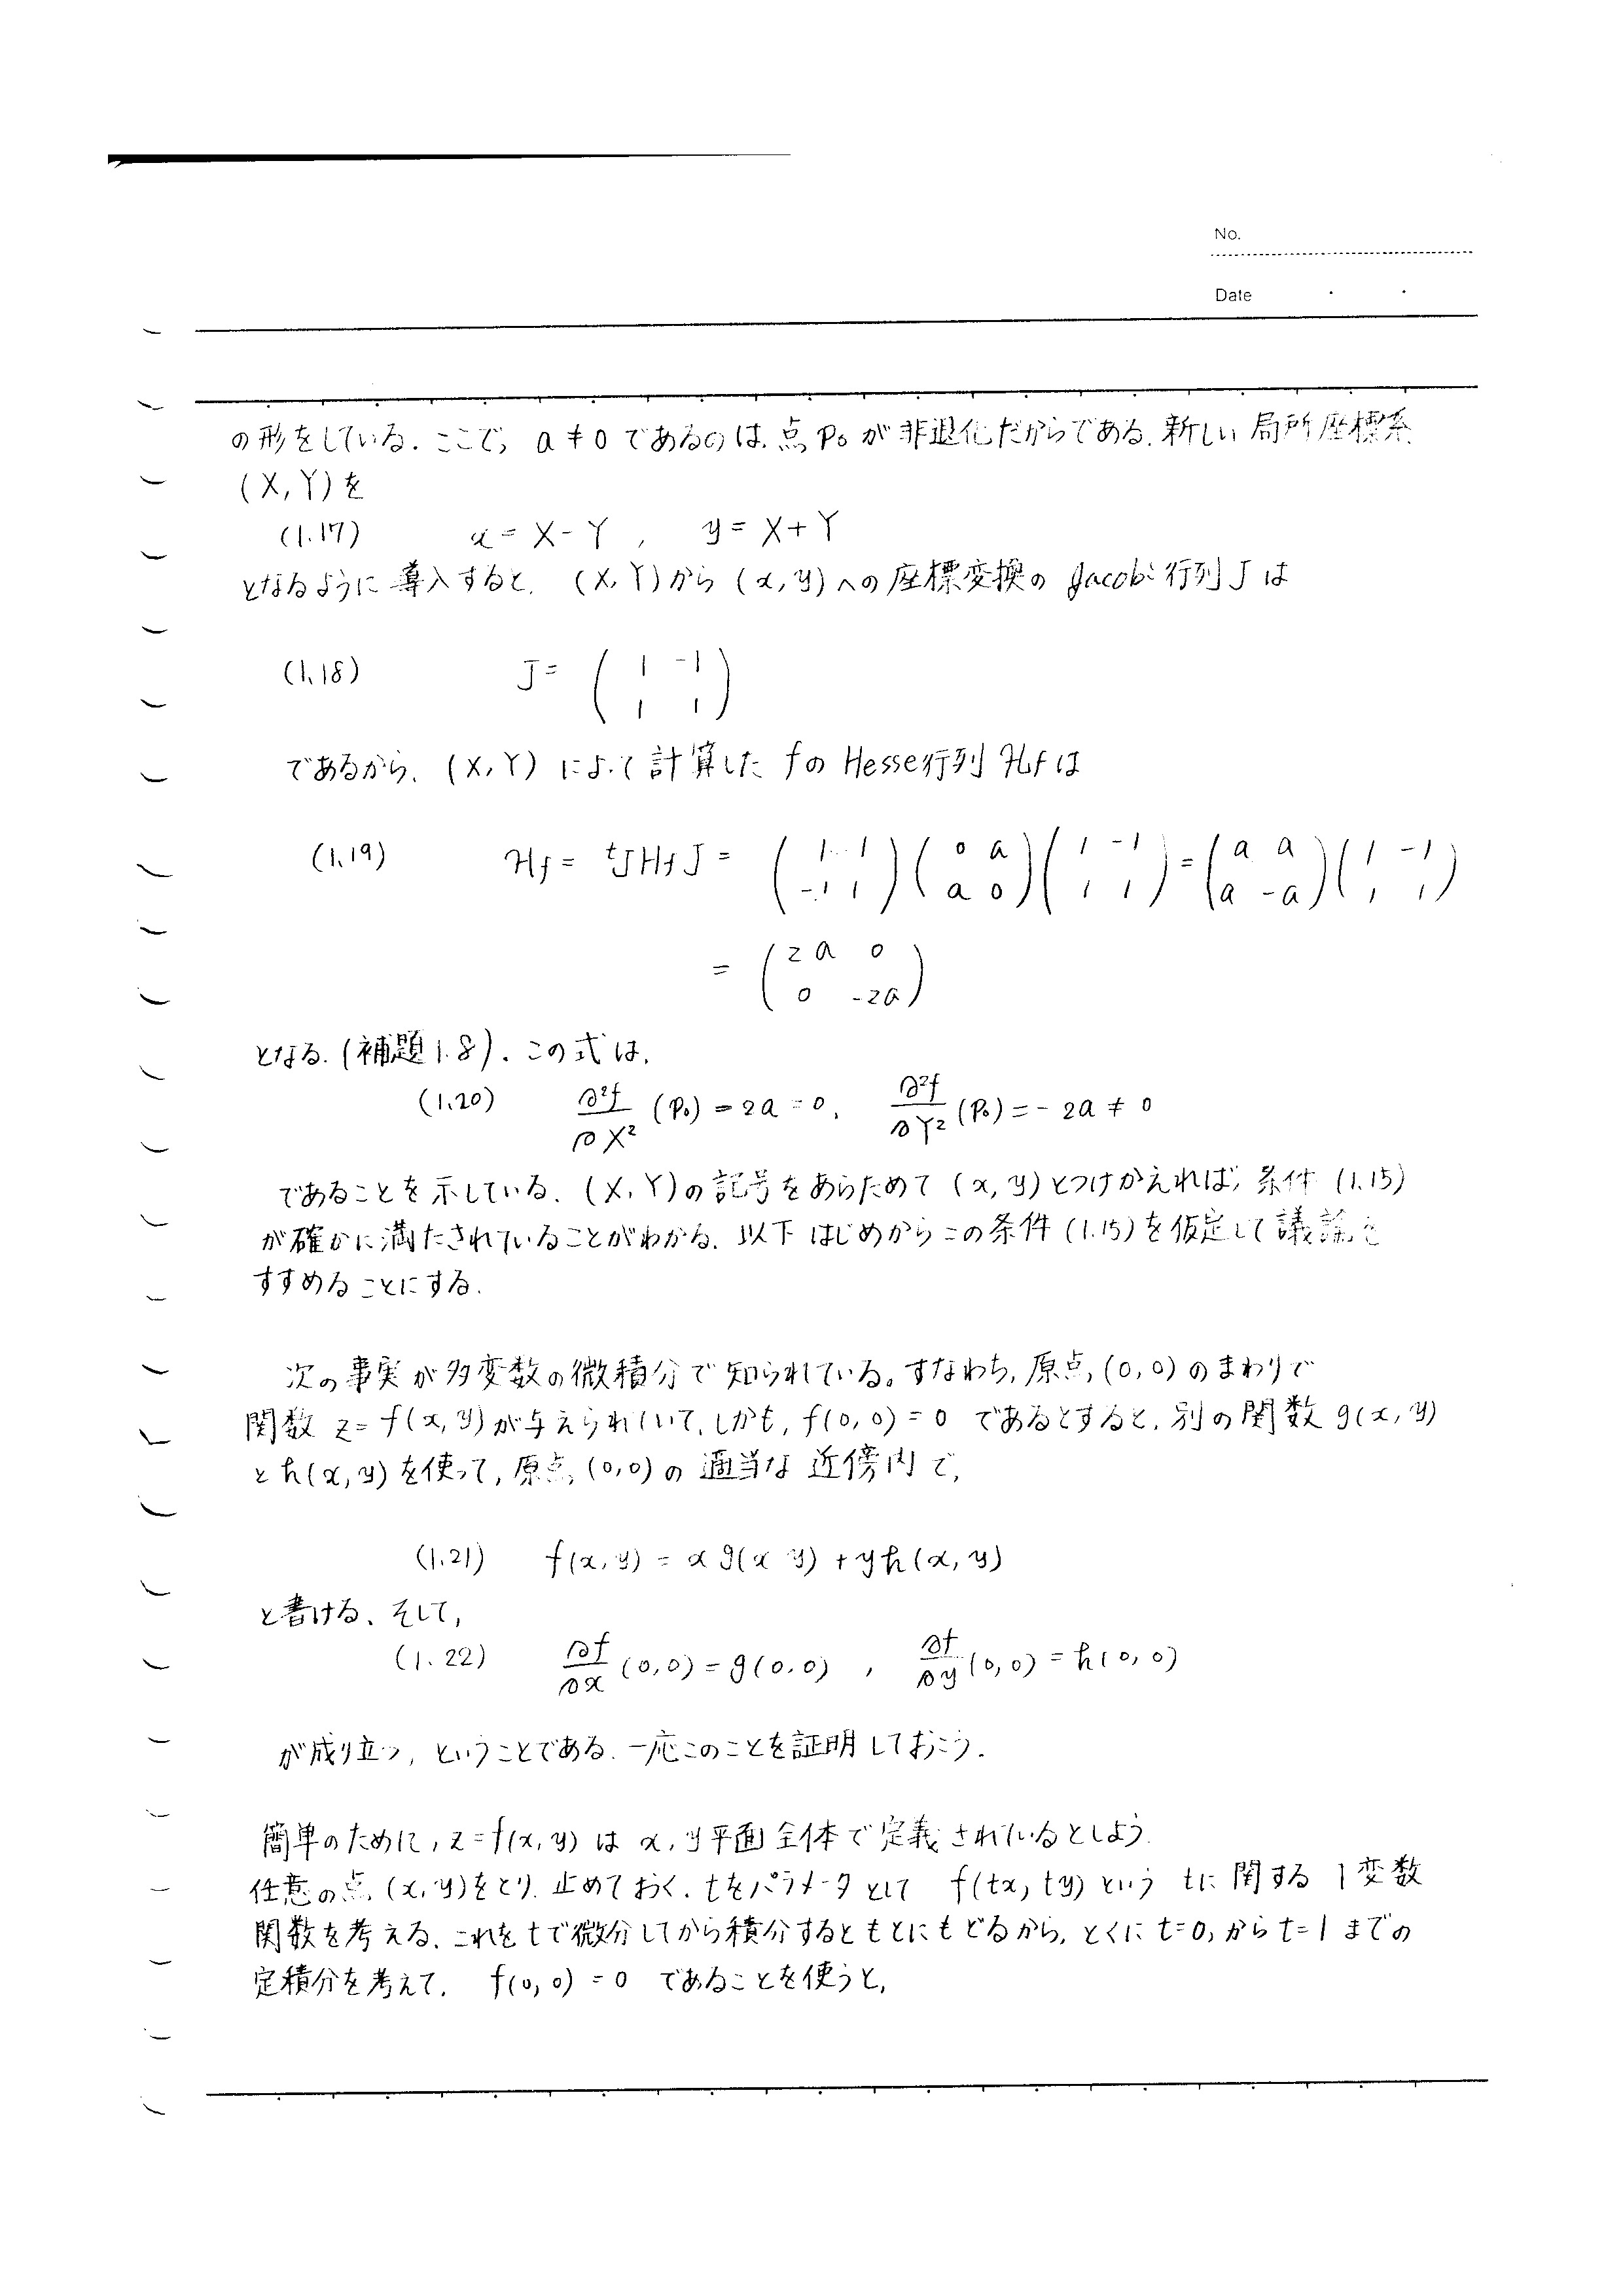 No.
Date
の形をしている. ここで, a ≠ 0 であるのは, 点 p₀ が 非退化だからである. 新しい 局所座標系
(X, Y) を
(1.17) x = X - Y , y = X + Y
となるように 導入すると, (X, Y) から (x, y) への 座標変換の Jacobi 行列 J は
(1.18) J = ( 1 -1
1 1 )
であるから, (X, Y) によって 計算した f の Hesse行列 ℋf は
(1.19) ℋf = ᵗJ Hf J = ( 1 1 ; -1 1 ) ( 0 a ; a 0 ) ( 1 -1 ; 1 1 ) = ( a a ; a -a ) ( 1 -1 ; 1 1 )
= ( 2a 0 ; 0 -2a )
となる. (補題 1.8). この式は,
(1.20) ∂²f/∂X² (p₀) = 2a = 0, ∂²f/∂Y² (p₀) = - 2a ≠ 0
であることを 示している. (X, Y) の記号をあらためて (x, y) とつけかえれば, 条件 (1.15)
が確かに満たされていることがわかる. 以下 はじめからこの条件 (1.15) を仮定して 議論を
すすめることにする.
次の事実が多変数の微積分で知られている。すなわち, 原点 (0, 0) のまわりで
関数 z = f(x, y) が与えられていて, しかも, f(0, 0) = 0 であるとすると, 別の関数 g(x, y)
と h(x, y) を使って, 原点 (0,0) の 適当な 近傍内で,
(1.21) f(x, y) = x g(x y) + y h(x, y)
と書ける. そして,
(1.22) ∂f/∂x (0, 0) = g(0, 0) , ∂f/∂y (0, 0) = h(0, 0)
が成り立つ, ということである. 一応このことを証明しておこう.
簡単のために, z = f(x, y) は x, y 平面 全体で定義されているとしよう.
任意の点 (x, y) をとり, 止めておく. t をパラメータとして f(tx, ty) という t に関する 1 変数
関数を考える. これを t で微分してから積分するともとにもどるから, とくに t=0, から t=1 までの
定積分を考えて, f(0, 0) = 0 であることを使うと,